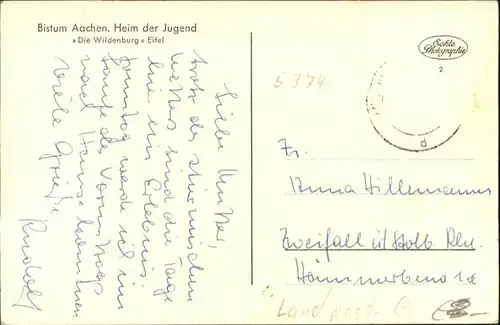 Bistum Aachen. Heim der Jugend
»Die Wildenburg« Eifel
Echte
Photographie
2
5374
Liebe Mutter,
trotz des stürmischen
Wetters sind die Tage
hier ein Erlebnis.
Sonntag werde ich im
Laufe des Vormittags
nach Hause kommen.
Viele Grüße
Rudolf
Fr.
Anna Hillemanns
Zweifall ü/ Stolb. Rhl.
Landpost